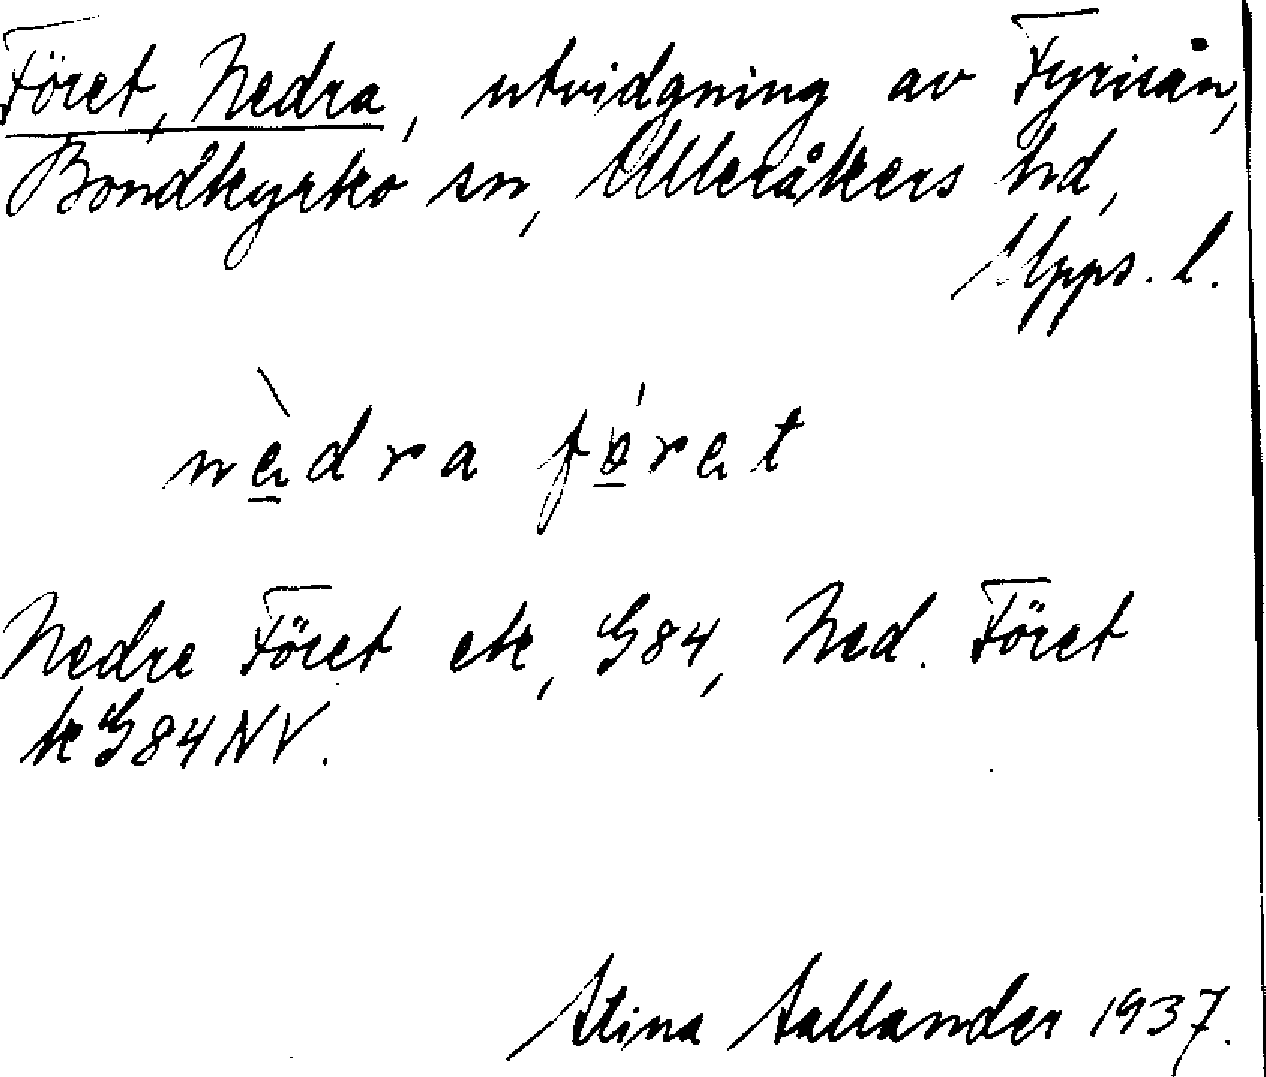 Föret, Nedra, utvidgning av Fyrisån,
Bondkyrko sn, Ulleråkers hd,
Upps. l.
nèdra fǿret
Nedre Föret ek, G84, Ned. Föret
k G84 NV.
Stina Sallander 1937.